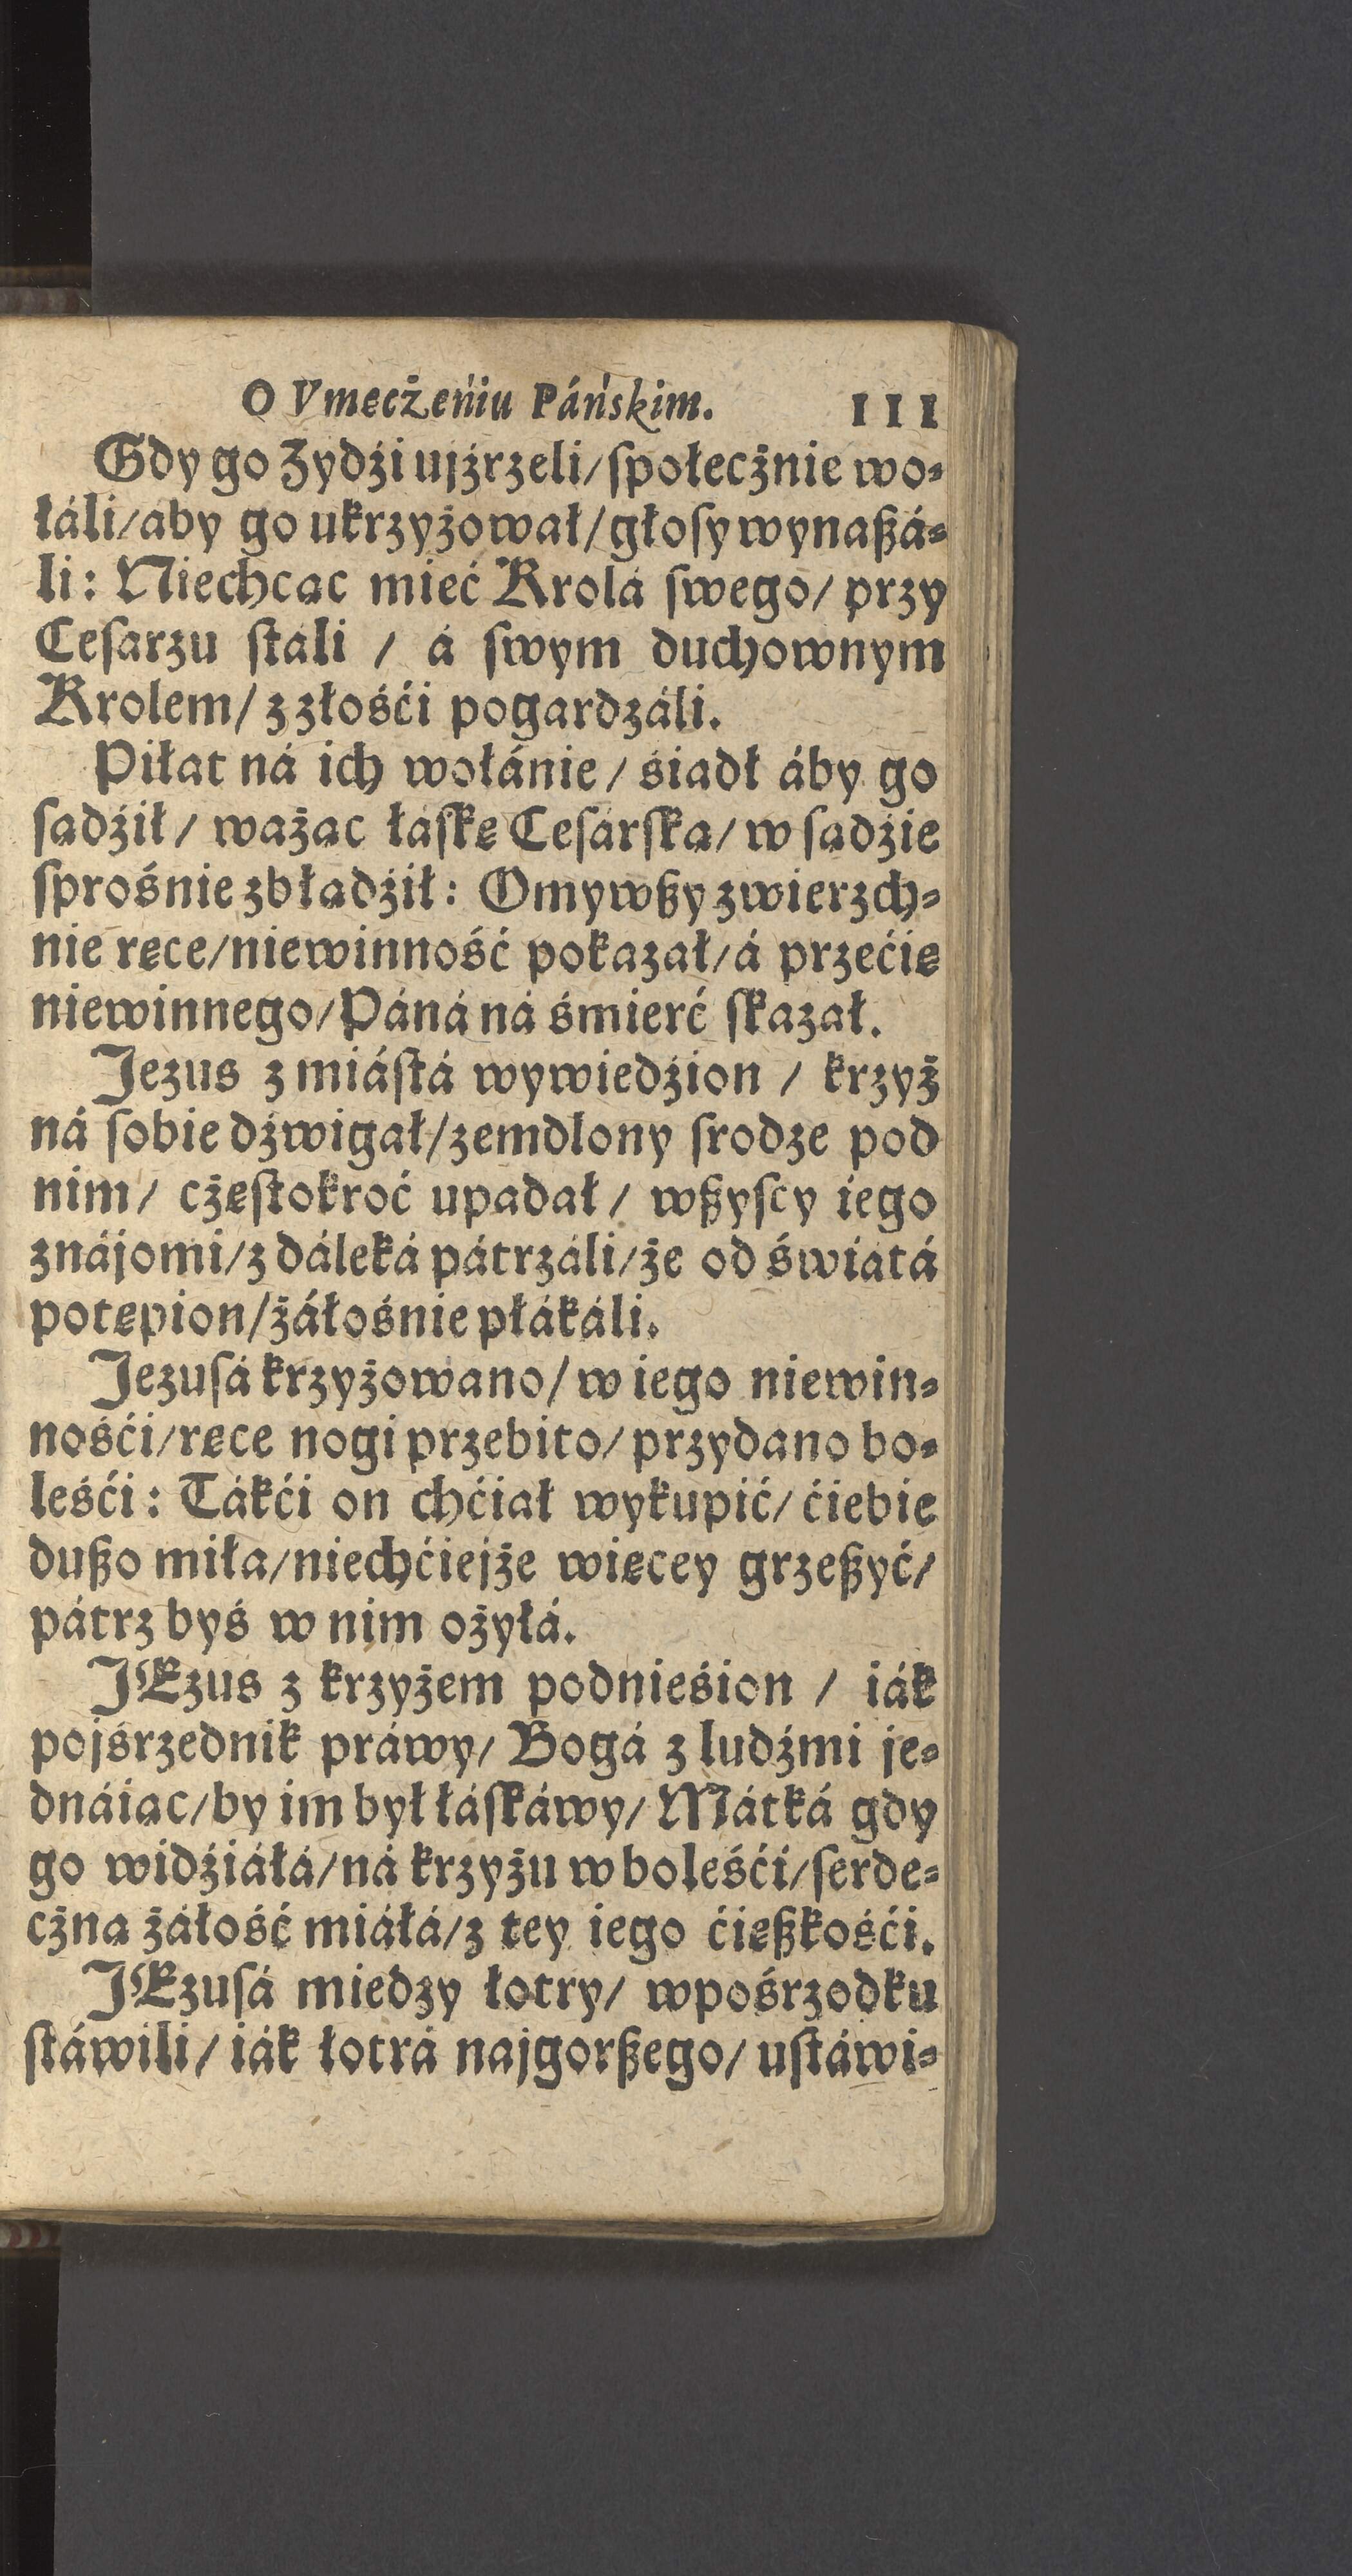 O Vmęcżeńiu Páńskim. 111
Gdy go Zydźi ujźrzeli/ społecżnie wo-
łáli/ aby go ukrzyżował/ głosy wynaßá-
li: Niechcąc mieć Krolá swego/ przy
Cesarzu stáli / á swym duchownym
Krolem/ z złośći pogardzáli.
Piłat ná ich wołánie/ śiadł áby go
sądźił/ ważąc łáskę Cesárską/ w sądźie
sprośnie zbłądźił: Omywßy zwierzch-
nie ręce/ niewinność pokazał/ á przećię
niewinnego/ Páná ná śmierć skazał.
Jezus z miástá wywiedźion / krzyż
ná sobie dźwigał/ zemdlony srodze pod
nim/ cżęstokroć upadał/ wßyscy iego
znájomi/ z dáleká pátrzáli/ że od świátá
potępion/ żáłośnie płákáli.
Jezusá krzyżowano/ w iego niewin-
nośći/ ręce nogi przebito/ przydano bo-
leśći: Tákći on chćiał wykupić/ ćiebie
dußo miła/ niechćiejże więcey grzeßyć/
pátrz byś w nim ożyłá.
JEzus z krzyżem podnieśion / iák
pojśrzednik práwy/ Bogá z ludźmi je-
dnáiąc/ by im był łáskáwy/ Mátká gdy
go widźiáłá/ ná krzyżu w boleśći/ serde-
cżną żáłość miáłá/ z tey iego ćięßkośći.
JEzusá miedzy łotry/ wpośrzodku
stáwili/ iák łotrá najgorßego/ ustáwi-